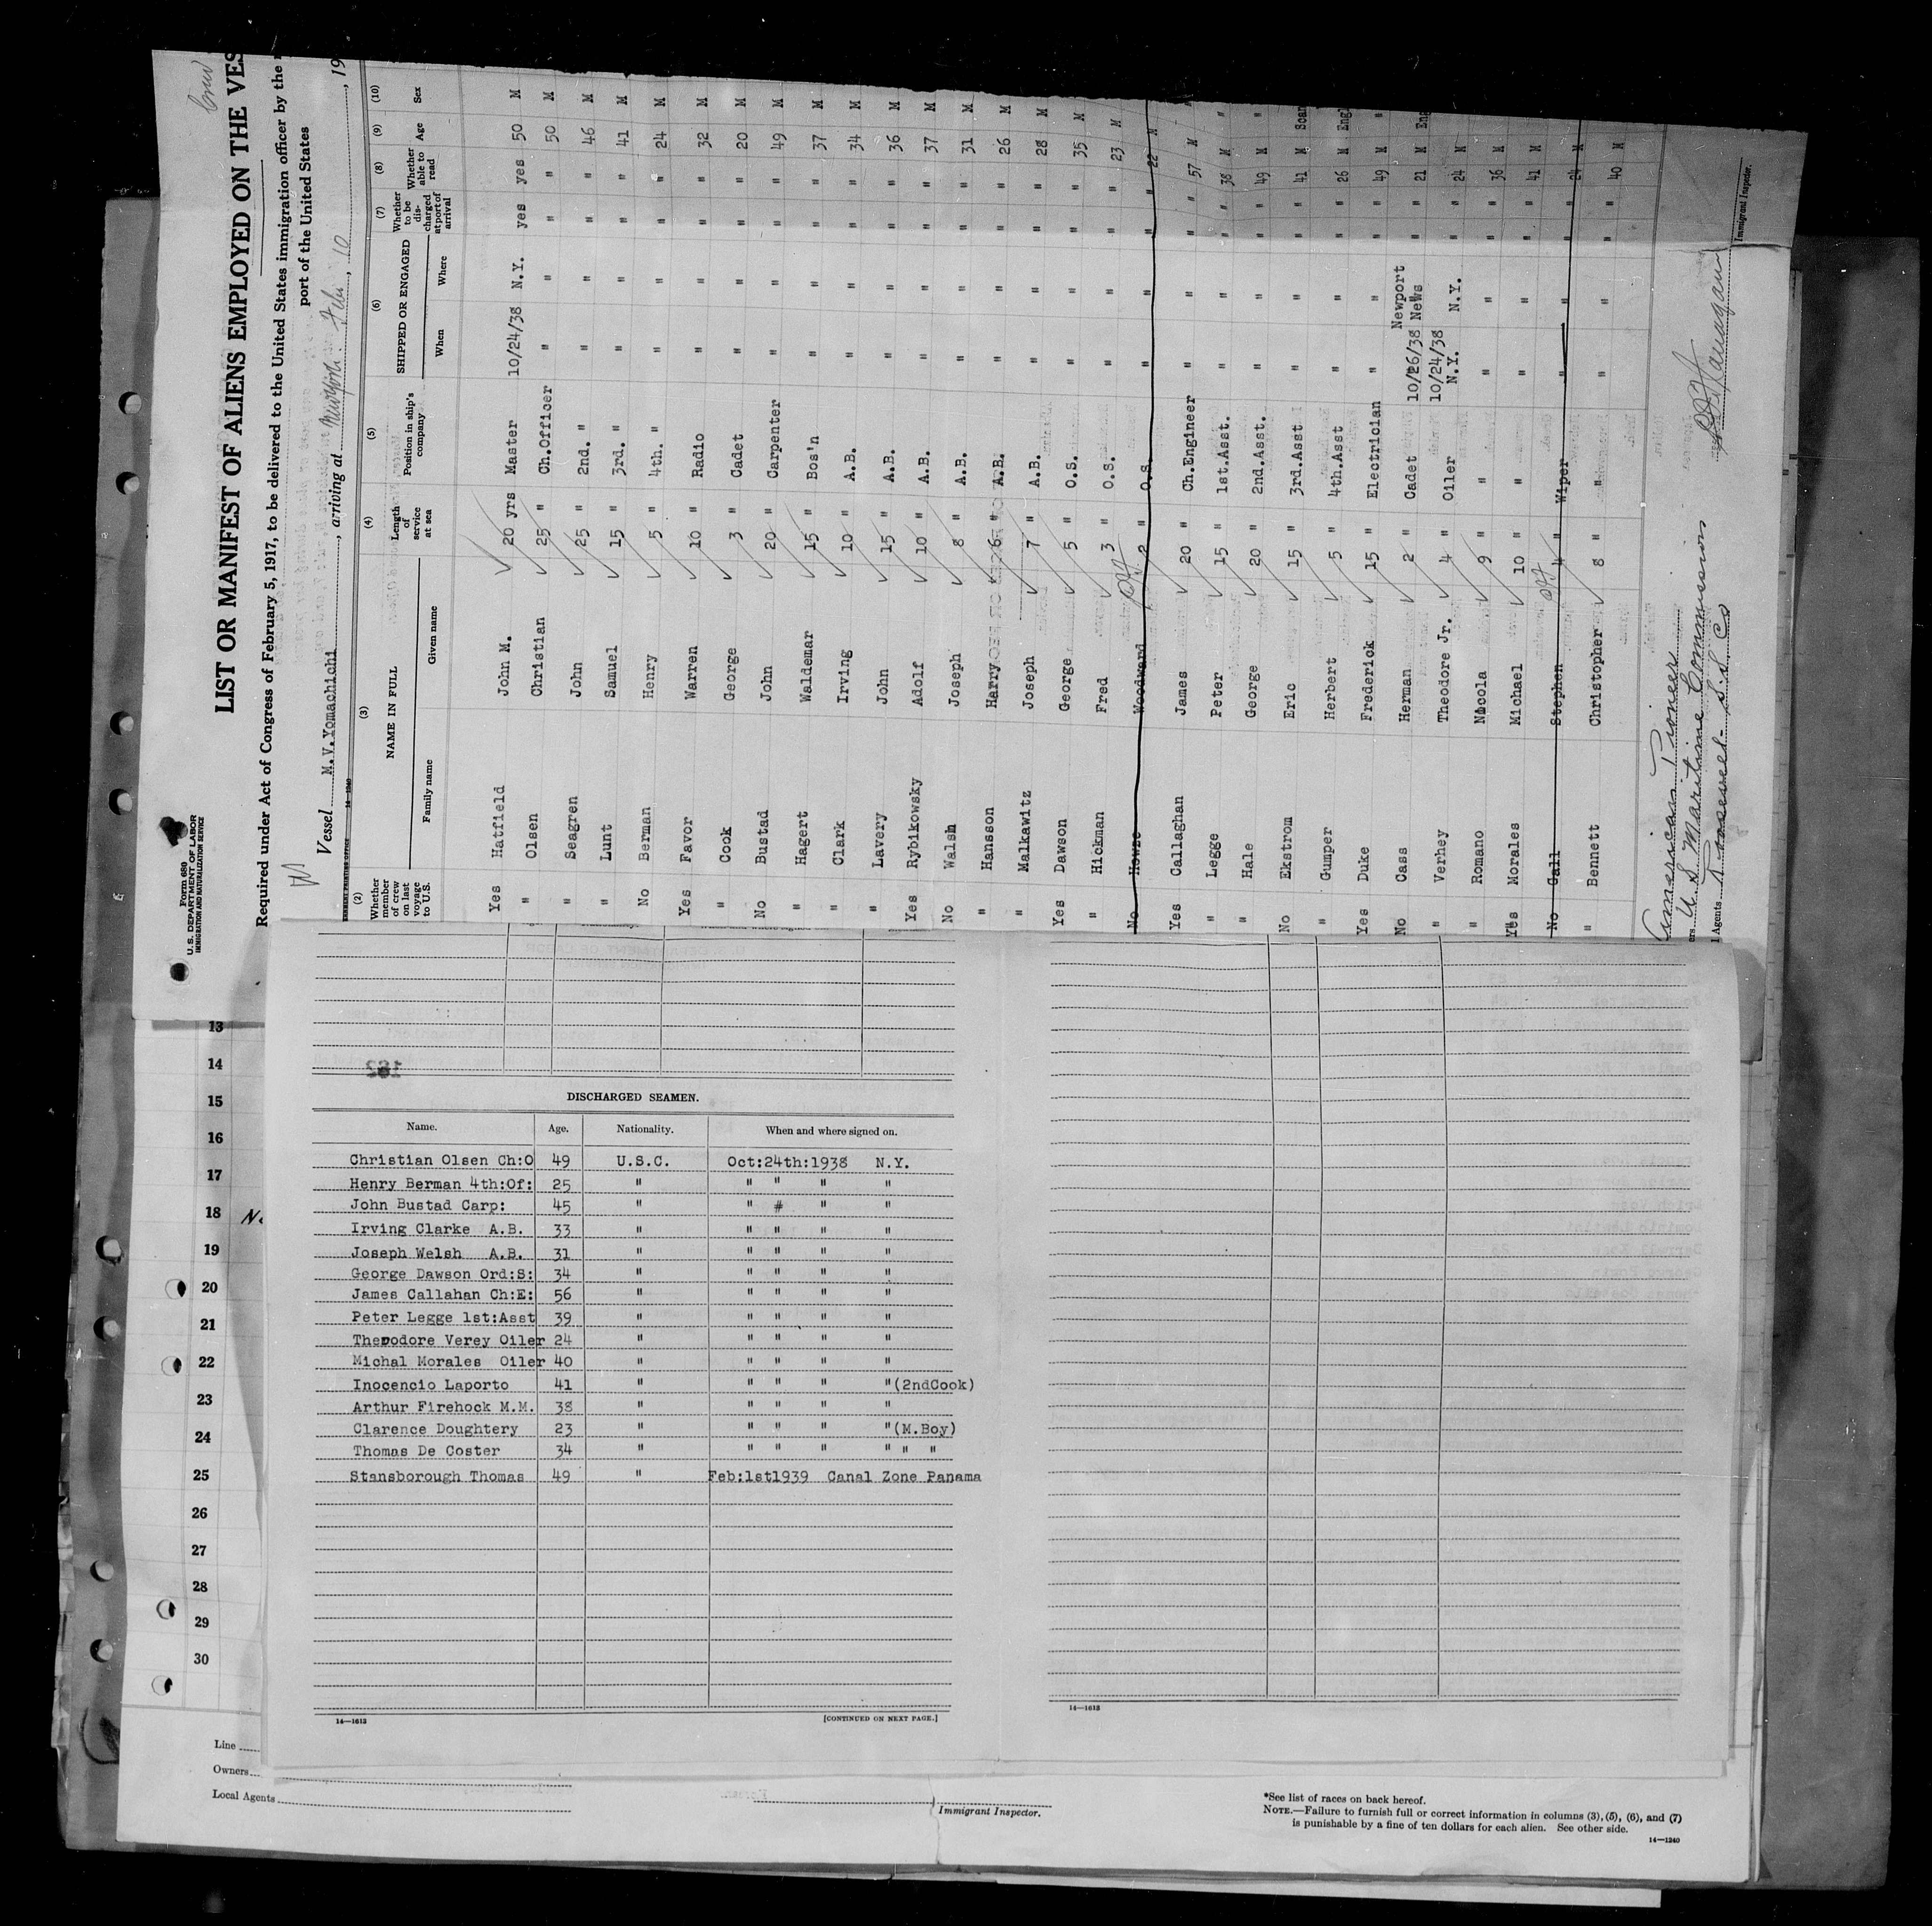 Form 680
U. S. DEPARTMENT OF LABOR
IMMIGRATION AND NATURALIZATION SERVICE
Crew
LIST OR MANIFEST OF ALIENS EMPLOYED ON THE VES
Required under Act of Congress of February 5, 1917, to be delivered to the United States immigration officer by the
port of the United States
Vessel M.V. Yomachichi, arriving at New York, Feb. 10, 19
14-1240
(2) (3) (4) (5) (6) (7) (8) (9) (10)
Whether member of crew on last voyage to U.S. NAME IN FULL Family name Given name Length of service at sea Position in ship's company SHIPPED OR ENGAGED When Where Whether to be discharged at port of arrival Whether able to read Age Sex
Yes Hatfield John M. 20 yrs Master 10/24/38 N.Y. yes yes 50 M
" Olsen Christian 25 " Ch.Officer " " " " 50 M
" Seagren John 25 " 2nd. " " " " " 46 M
" Lunt Samuel 15 " 3rd. " " " " " 41 M
No Berman Henry 5 " 4th. " " " " " 24 M
Yes Favor Warren 10 " Radio " " " " 32 M
" Cook George 3 " Cadet " " " " 20 M
No Bustad John 20 " Carpenter " " " " 49 M
" Hagert Waldemar 15 " Bos'n " " " " 37 M
" Clark Irving 10 " A.B. " " " " 34 M
" Lavery John 15 " A.B. " " " " 36 M
Yes Rybikowsky Adolf 10 " A.B. " " " " 37 M
No Walsh Joseph 8 " A.B. " " " " 31 M
" Hansson Harry 6 " A.B. " " " " 26 M
" Malkawitz Joseph 7 " A.B. " " " " 28 M
Yes Dawson George 5 " O.S. " " " " 35 M
" Hickman Fred 3 " O.S. " " " " 23 M
No Howze Woodward 2 " O.S. " " " " 22 M
Yes Callaghan James 20 " Ch.Engineer " " " " 57 M "
" Legge Peter 15 " 1st.Asst. " " " " 38 M "
" Hale George 20 " 2nd.Asst. " " " " 49 M "
No Ekstrom Eric 15 " 3rd.Asst " " " " 41 M Scan
" Gumper Herbert 5 " 4th.Asst " " " " 26 M Engl
Yes Duke Frederick 15 " Electrician " " " " 49 M "
No Cass Herman 2 " Cadet 10/26/38 Newport News " " 21 M Eng
" Verhey Theodore Jr. 4 " Oiler 10/24/38 N.Y. N.Y. " " 24 M
" Romano Nicola 9 " " " " " " 36 M
Yes Morales Michael 10 " " " " " " 41 M
No Gall Stephen 4 " Wiper " " " " 24 M
" Bennett Christopher 8 " " " " " " 40 M
American Pioneer
ers U S Maritime Commission
l Agents Roosevelt S.S. Co
Immigrant Inspector.
13
14
15
16
17
18
19
20
21
22
23
24
25
26
27
28
29
30
182
DISCHARGED SEAMEN.
Name. Age. Nationality. When and where signed on.
Christian Olsen Ch:O 49 U.S.C. Oct:24th:1938 N.Y.
Henry Berman 4th:Of: 25 " " " " "
John Bustad Carp: 45 " " # " "
Irving Clarke A.B. 33 " " " " "
Joseph Welsh A.B. 31 " " " " "
George Dawson Ord:S: 34 " " " " "
James Callahan Ch:E: 56 " " " " "
Peter Legge 1st:Asst 39 " " " " "
Theodore Verey Oiler 24 " " " " "
Michal Morales Oiler 40 " " " " "
Inocencio Laporto 41 " " " " "(2ndCook)
Arthur Firehock M.M. 38 " " " " "
Clarence Doughtery 23 " " " " "(M.Boy)
Thomas De Coster 34 " " " " " " "
Stansborough Thomas 49 " Feb:1st1939 Canal Zone Panama
14—1613 [CONTINUED ON NEXT PAGE.]
14—1613
Line
Owners
Local Agents
Immigrant Inspector.
*See list of races on back hereof.
NOTE.—Failure to furnish full or correct information in columns (3), (5), (6), and (7)
is punishable by a fine of ten dollars for each alien. See other side.
14—1240